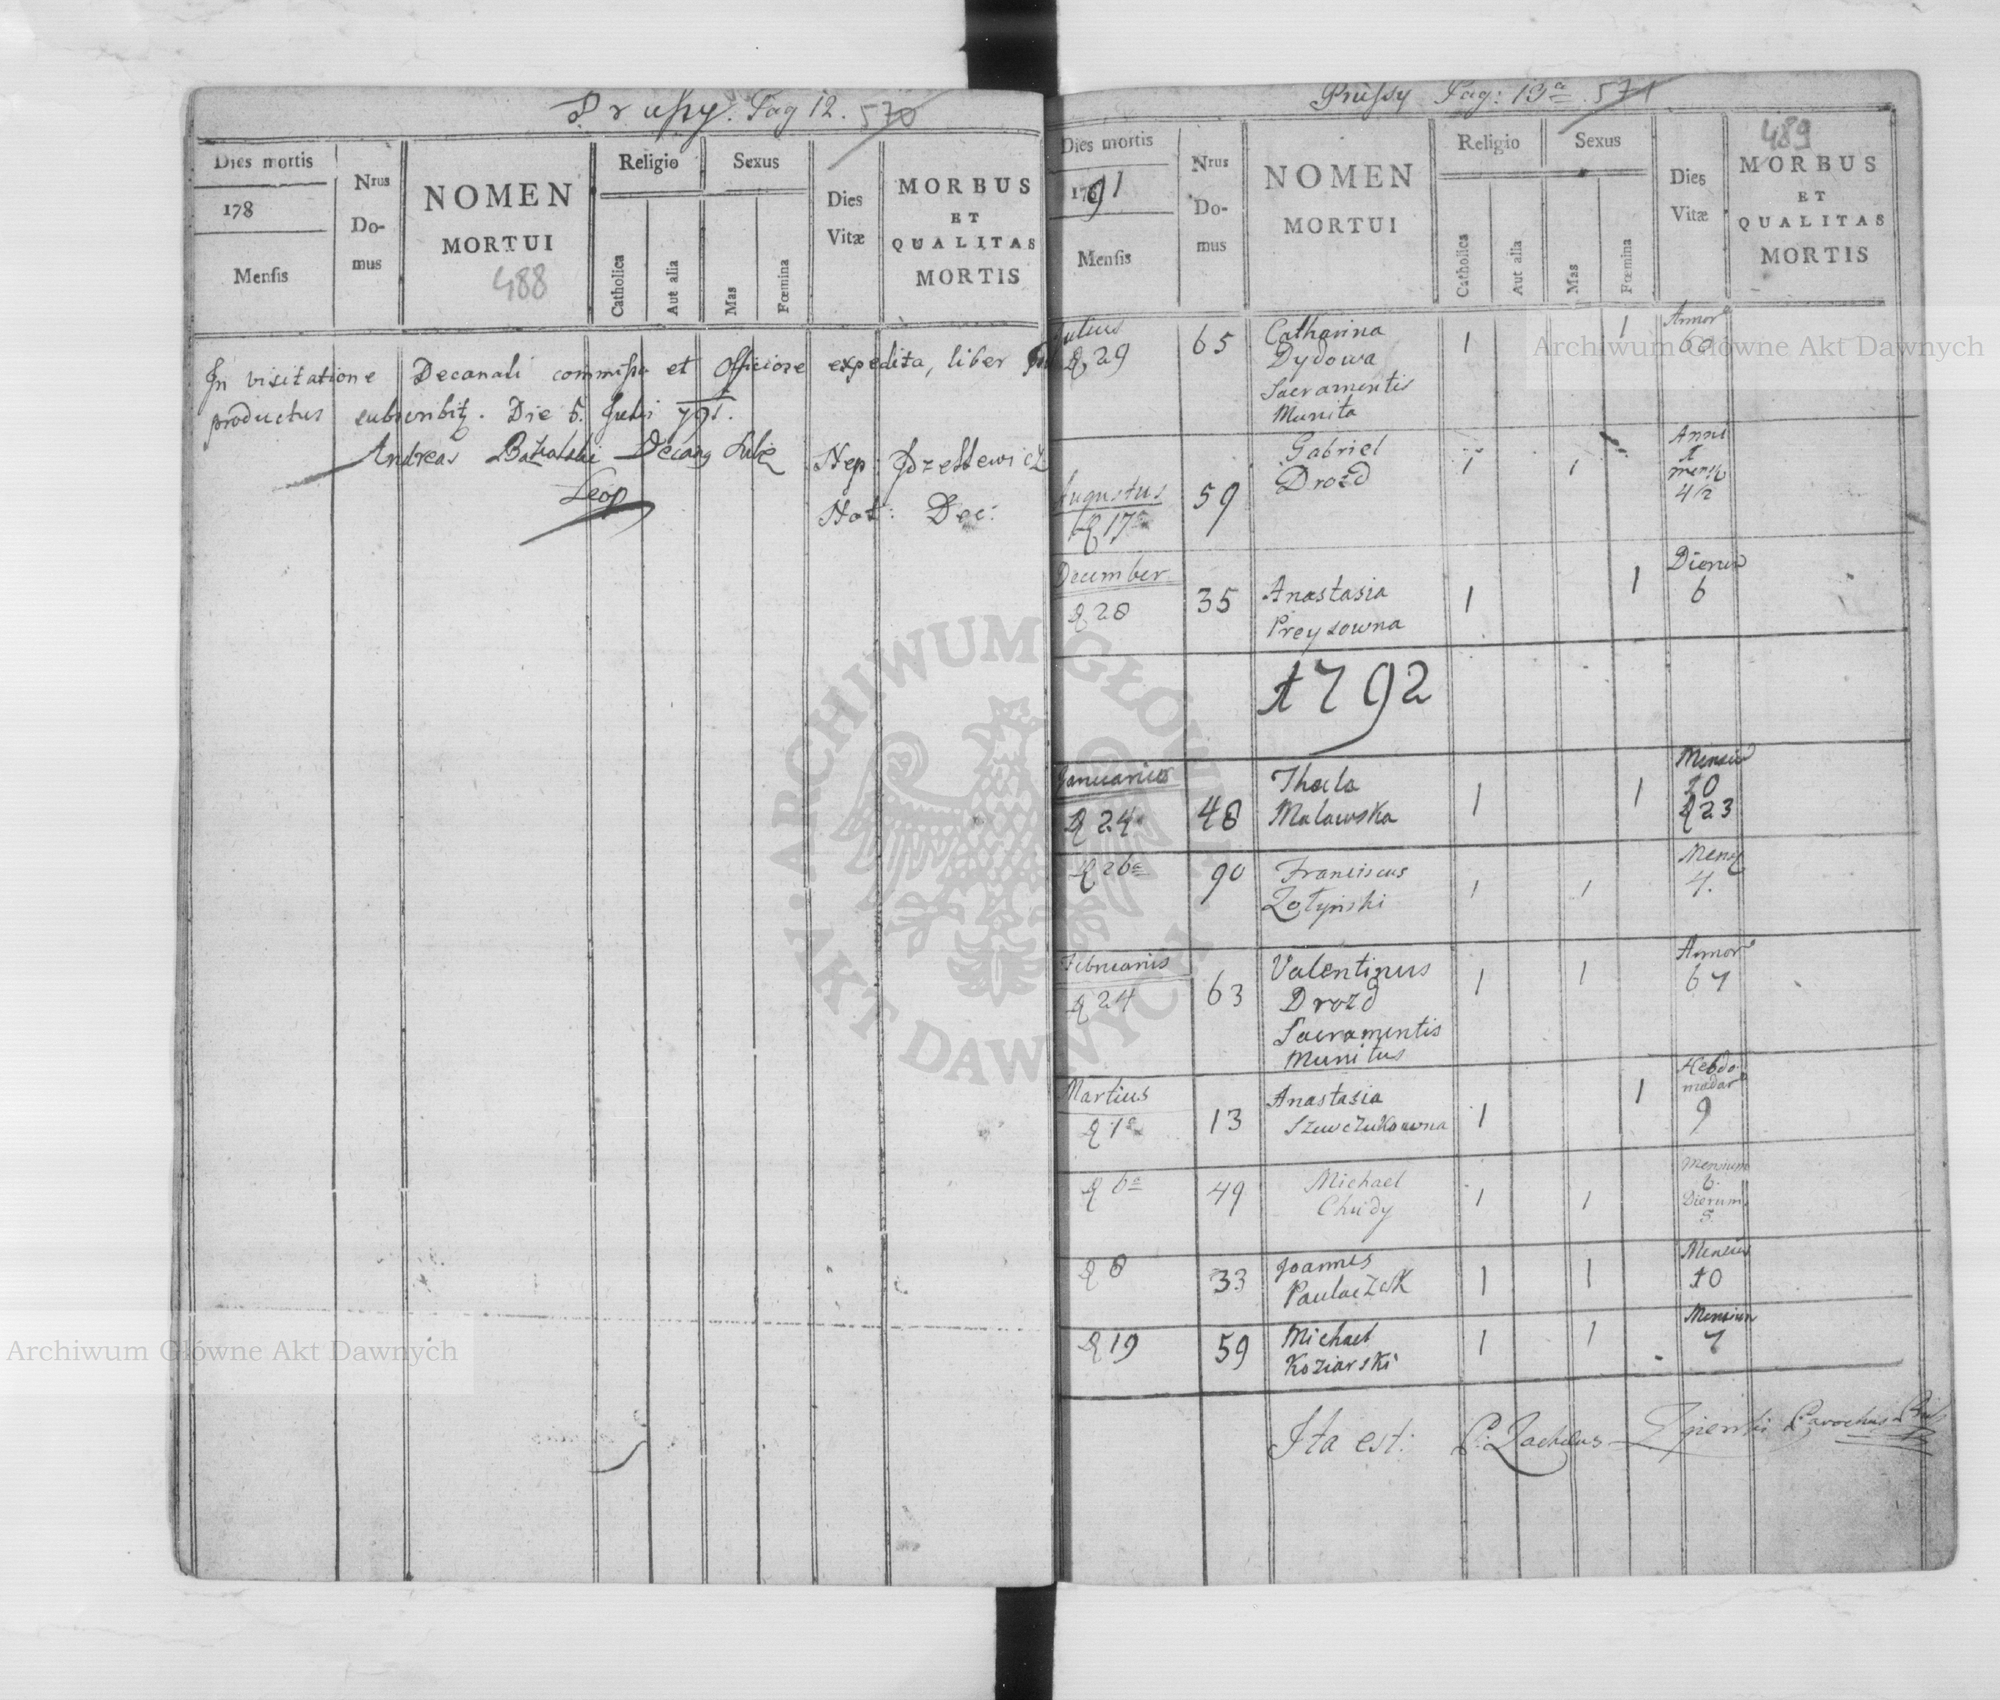 Prussy. Pag 12. 570
Dies mortis
178
Mensis
Nrus
Do-
mus
NOMEN
MORTUI
488
Religio
Catholica
Aut alia
Sexus
Mas
Fœmina
Dies
Vitæ
MORBUS
ET
QUALITAS
MORTIS
In visitatione Decanali commissa et Officiose expedita, liber
productus subscribitz. Die 5. Julii 791.
Andreas Decanq
Leop
Nep:
Not: Dec:
Prussy Pag: 13a 571
Dies mortis
1791
Mensis
Nrus
Do-
mus
NOMEN
MORTUI
Religio
Catholica
Aut alia
Sexus
Mas
Fœmina
Dies
Vitæ
489
MORBUS
ET
QUALITAS
MORTIS
Julius 65 Catharina 1 1 Annor
29 Dydowa 60
Sacramentis
Munita
Augustus 59 Gabriel 1 1 Anni
17 Drozd 1
mens
4 1/2
December 35 Anastasia 1 1 Dierum
28 Preysowna 6
1792
Januarius 48 Thecla 1 1 Mensium
24 Malawska 10
23
26a 90 Franciscus 1 1 Mens
Zołyński 4.
Februarius 63 Valentinus 1 1 Annor
24 Drozd 67
Sacramentis
Munitus
Martius 13 Anastasia 1 1 Hebdo
1a Szewczukowna madar
9
6a 49 Michael 1 1 Mensium
Chudy 6
Dierum
5
8 33 Joannes 1 1 Mensium
Paulaczek 10
19 59 Michael 1 1 Mensium
Koziarski 7
Ita est: P: Zacheus Parochus
Archiwum Główne Akt Dawnych
Archiwum Główne Akt Dawnych
ARCHIWUM GŁÓWNE
AKT DAWNYCH